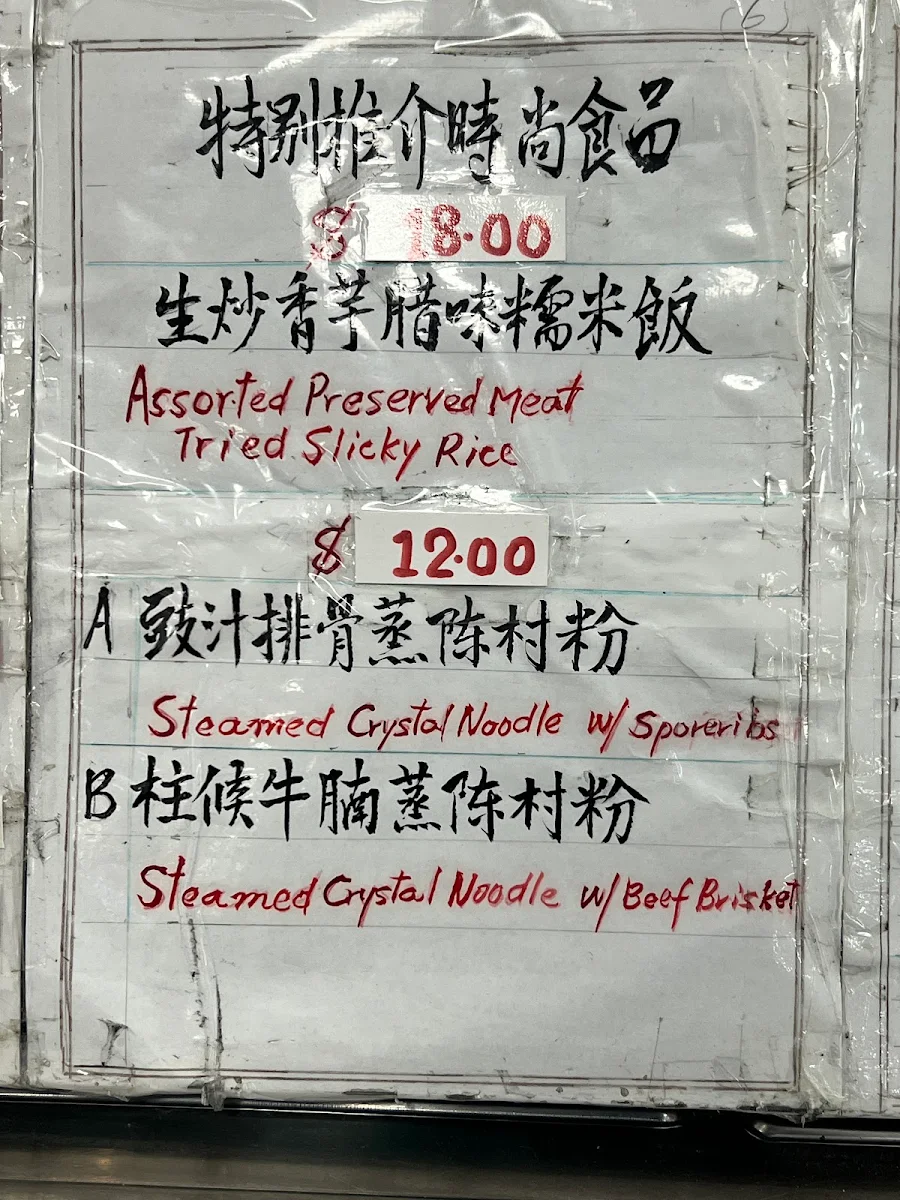 (6)
特别推介時尚食品
$ 18.00
生炒香芋腊味糯米飯
Assorted Preserved Meat
Tried Slicky Rice
$ 12.00
A 豉汁排骨蒸陈村粉
Steamed Crystal Noodle w/ Sporeribs
B 柱候牛腩蒸陈村粉
Steamed Crystal Noodle w/ Beef Brisket